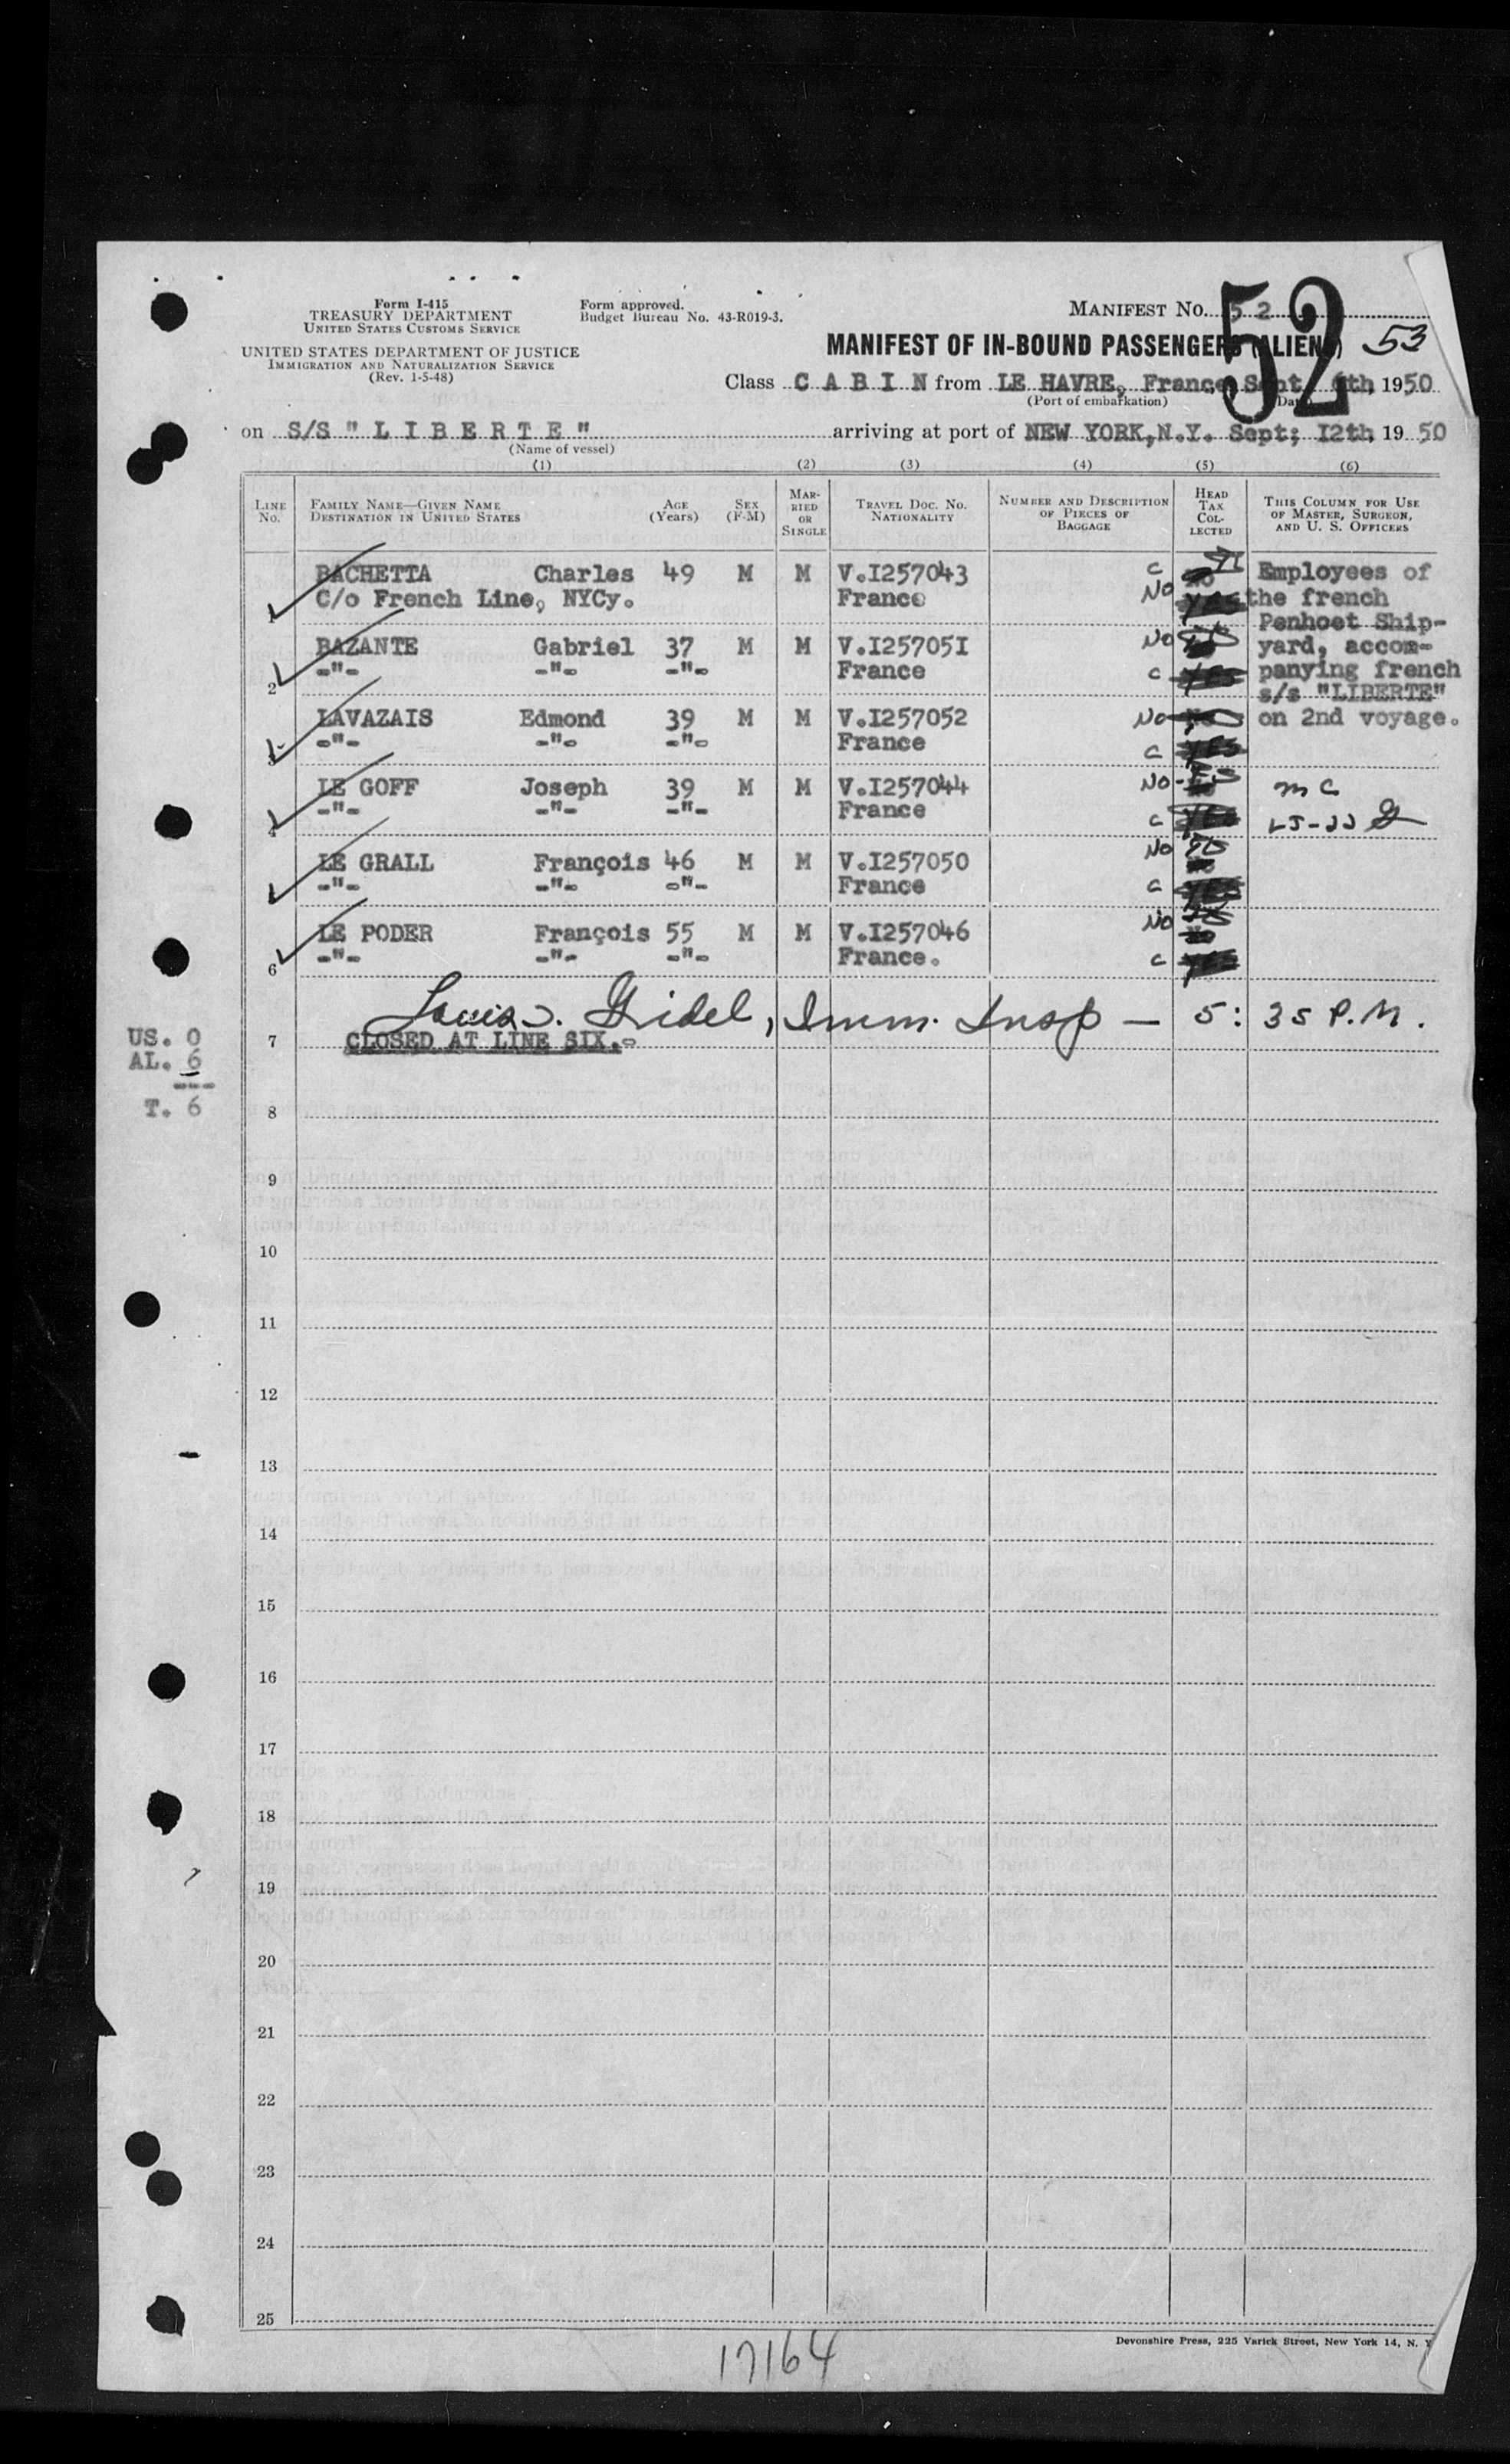 Form I-415
TREASURY DEPARTMENT
UNITED STATES CUSTOMS SERVICE
UNITED STATES DEPARTMENT OF JUSTICE
IMMIGRATION AND NATURALIZATION SERVICE
(Rev. 1-5-48)
Form approved.
Budget Bureau No. 43-R019-3.
MANIFEST No. 52
52
MANIFEST OF IN-BOUND PASSENGERS (ALIENS) 53
Class C A B I N from LE HAVRE, France, Sept. 6th, 1950
(Port of embarkation) (Date)
on S/S " L I B E R T E " arriving at port of NEW YORK, N.Y. Sept; I2th, 1950
(Name of vessel)
(1) (2) (3) (4) (5) (6)
LINE No. FAMILY NAME—GIVEN NAME DESTINATION IN UNITED STATES AGE (Years) SEX (F-M) MARRIED OR SINGLE TRAVEL DOC. NO. NATIONALITY NUMBER AND DESCRIPTION OF PIECES OF BAGGAGE HEAD TAX COLLECTED THIS COLUMN FOR USE OF MASTER, SURGEON, AND U. S. OFFICERS
1 BACHETTA Charles 49 M M V.I257043 C
C/o French Line, NYCy. France No YES
2 BAZANTE Gabriel 37 M M V.I25705I No
-"- -"- -"- France C YES
3 LAVAZAIS Edmond 39 M M V.I257052 No
-"- -"- -"- France C YES
4 LE GOFF Joseph 39 M M V.I257044 No
-"- -"- -"- France C YES
5 LE GRALL François 46 M M V.I257050 No
-"- -"- -"- France C YES
6 LE PODER François 55 M M V.I257046 No
-"- -"- -"- France. C YES
Employees of
the french
Penhoet Ship-
yard, accom-
panying french
s/s "LIBERTE"
on 2nd voyage.
m c
Louis J. Gridel, Imm. Insp — 5:35 P.M.
7 CLOSED AT LINE SIX.-
US. 0
AL. 6
---
T. 6
8
9
10
11
12
13
14
15
16
17
18
19
20
21
22
23
24
25
17164
Devonshire Press, 225 Varick Street, New York 14, N. Y.